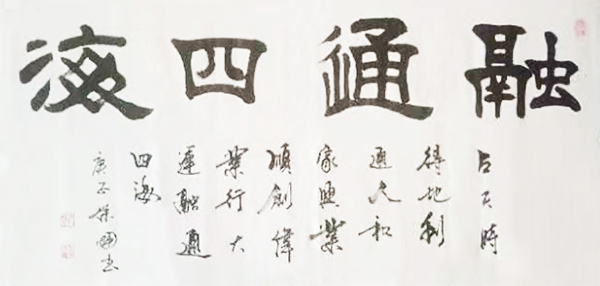 融通四海
占天時
得地利
通人和
家興業
順創偉
業行大
運融通
四海
庚子